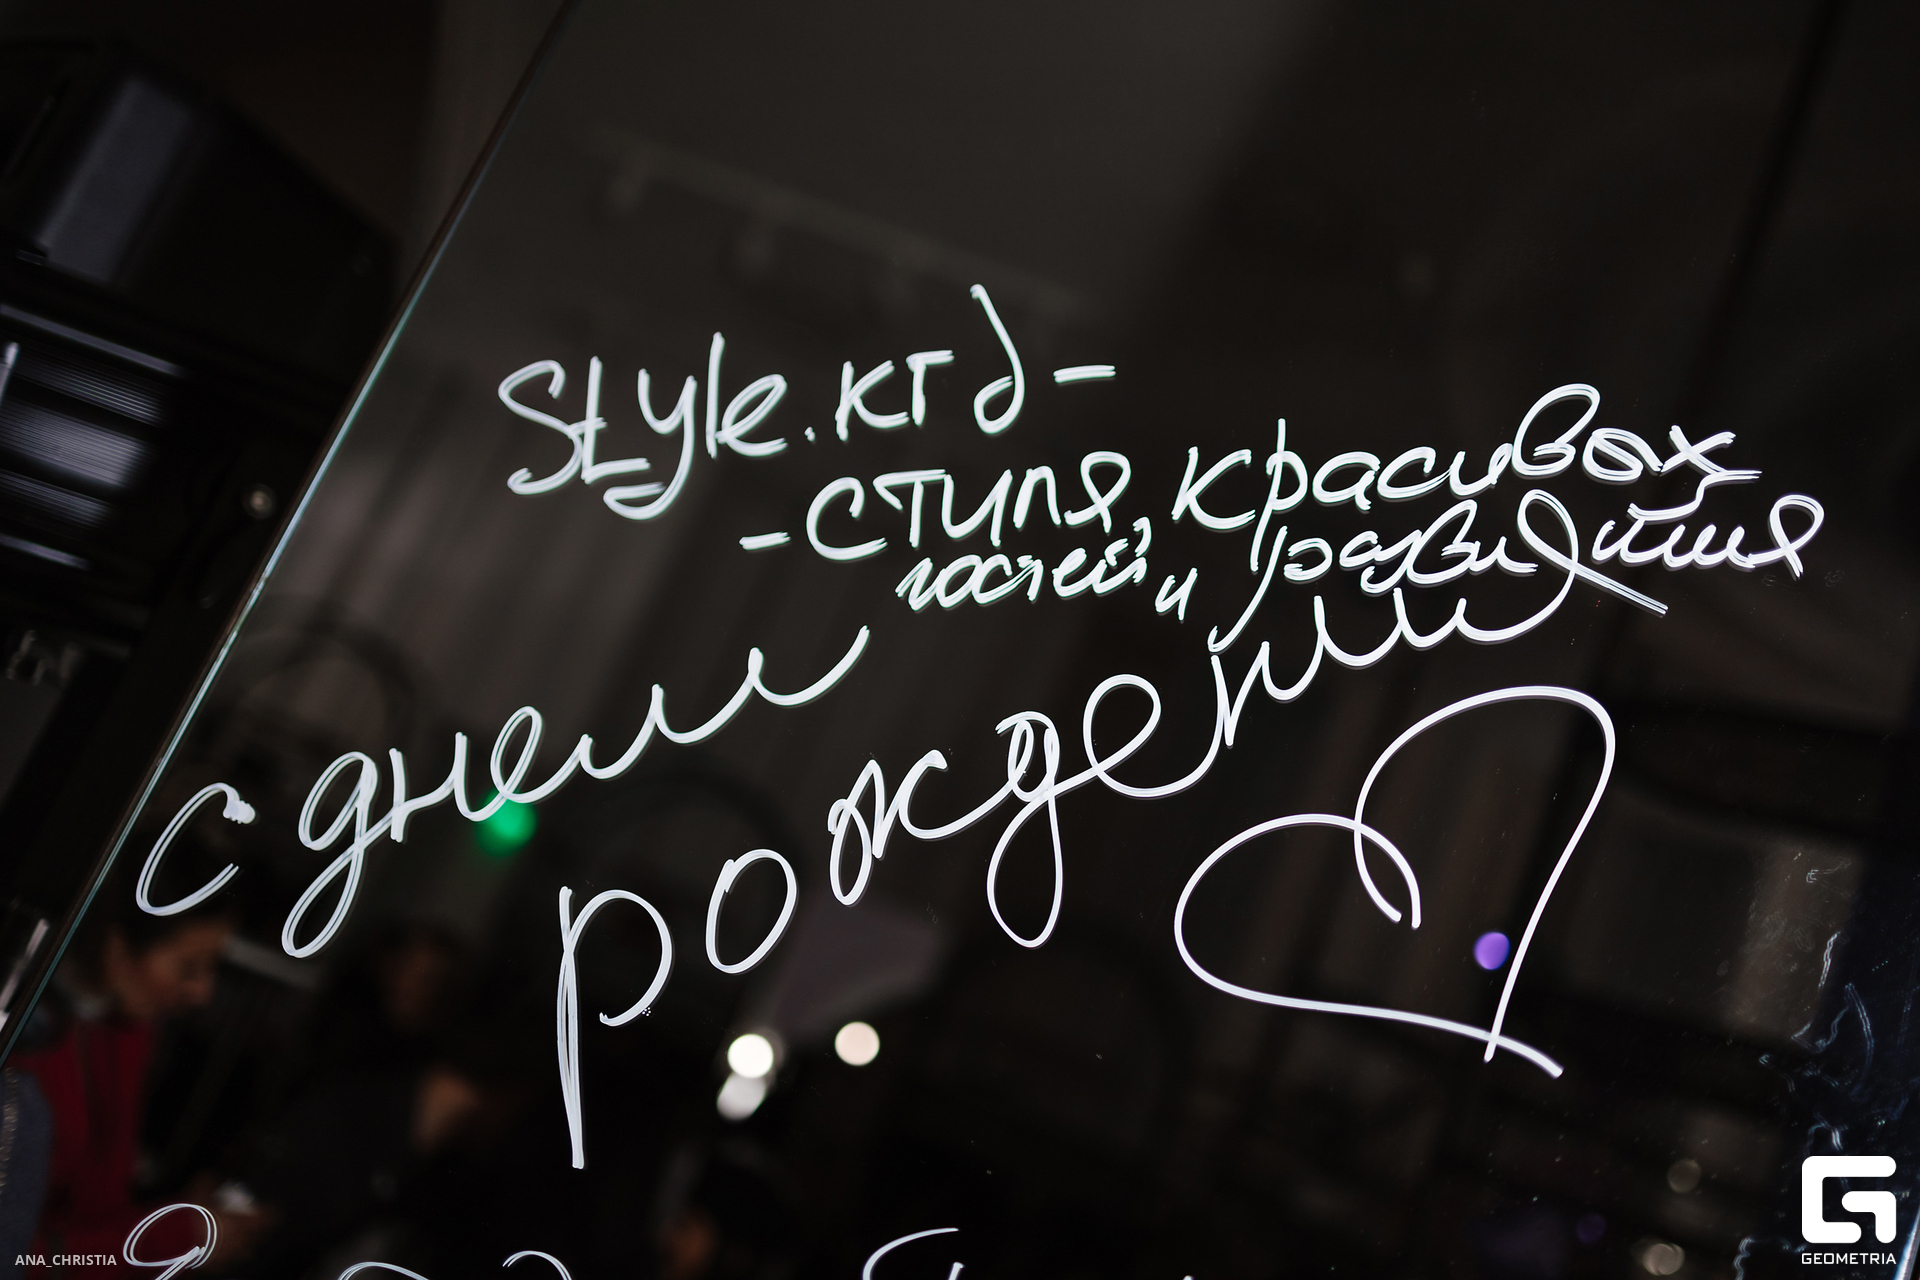 Style.кгд -
- стиля, красивых
гостей и развития
с днем
рождения
ANA_CHRISTIA
GEOMETRIA